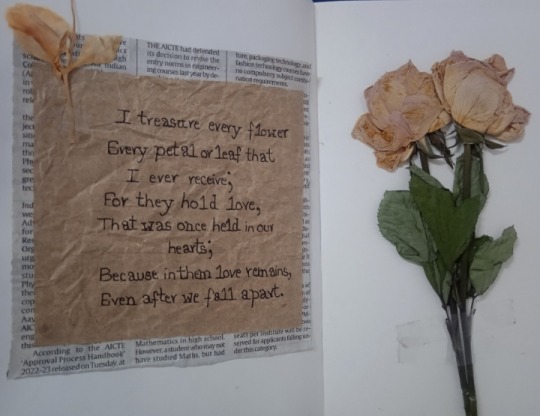 THE AICTE had defended
its decision to revise the
entry norms in engineer-
ing courses last year by de-
ture, packaging technology, and
fashion technology courses have
no compulsory subject combi-
nation requirements.
I treasure every flower
Every petal or leaf that
I ever receive;
For they hold love,
That was once held in our
hearts;
Because in them love remains,
Even after we fall apart.
According to the AICTE
'Approval Process Handbook'
2022-23 released on Tuesday, at
Mathematics in high school.
However, a student who may not
have studied Maths, but had
seats per institute will be re-
served for applicants falling un-
der this category.